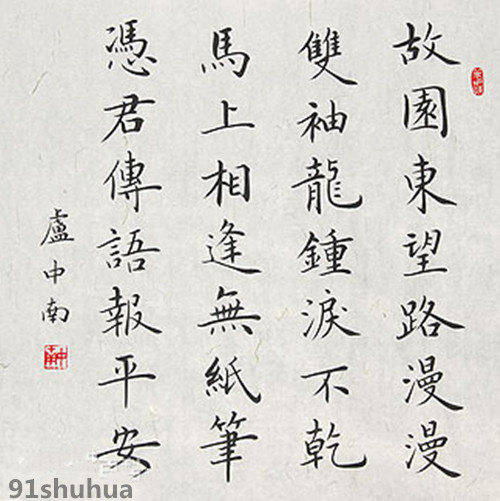 故園東望路漫漫
雙袖龍鍾淚不乾
馬上相逢無紙筆
憑君傳語報平安
盧中南
91shuhua